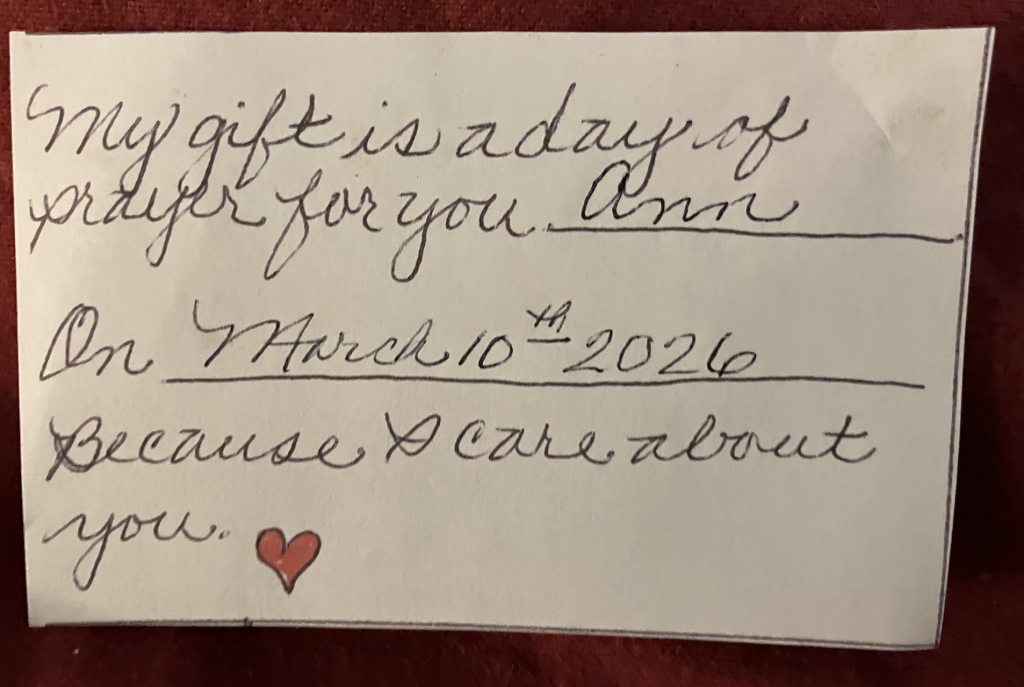 My gift is a day of
prayer for you. Ann
On March 10th 2026
Because I care about
you.